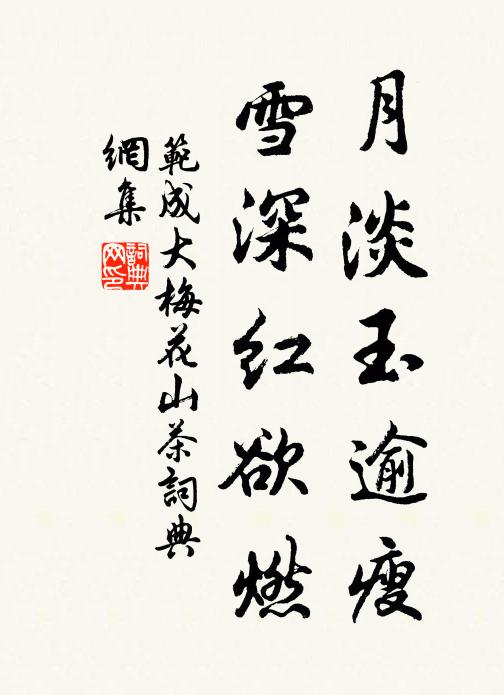 月淡玉逾瘦
雪深红欲燃
範成大梅花山茶詞典
網集
詞典
网印